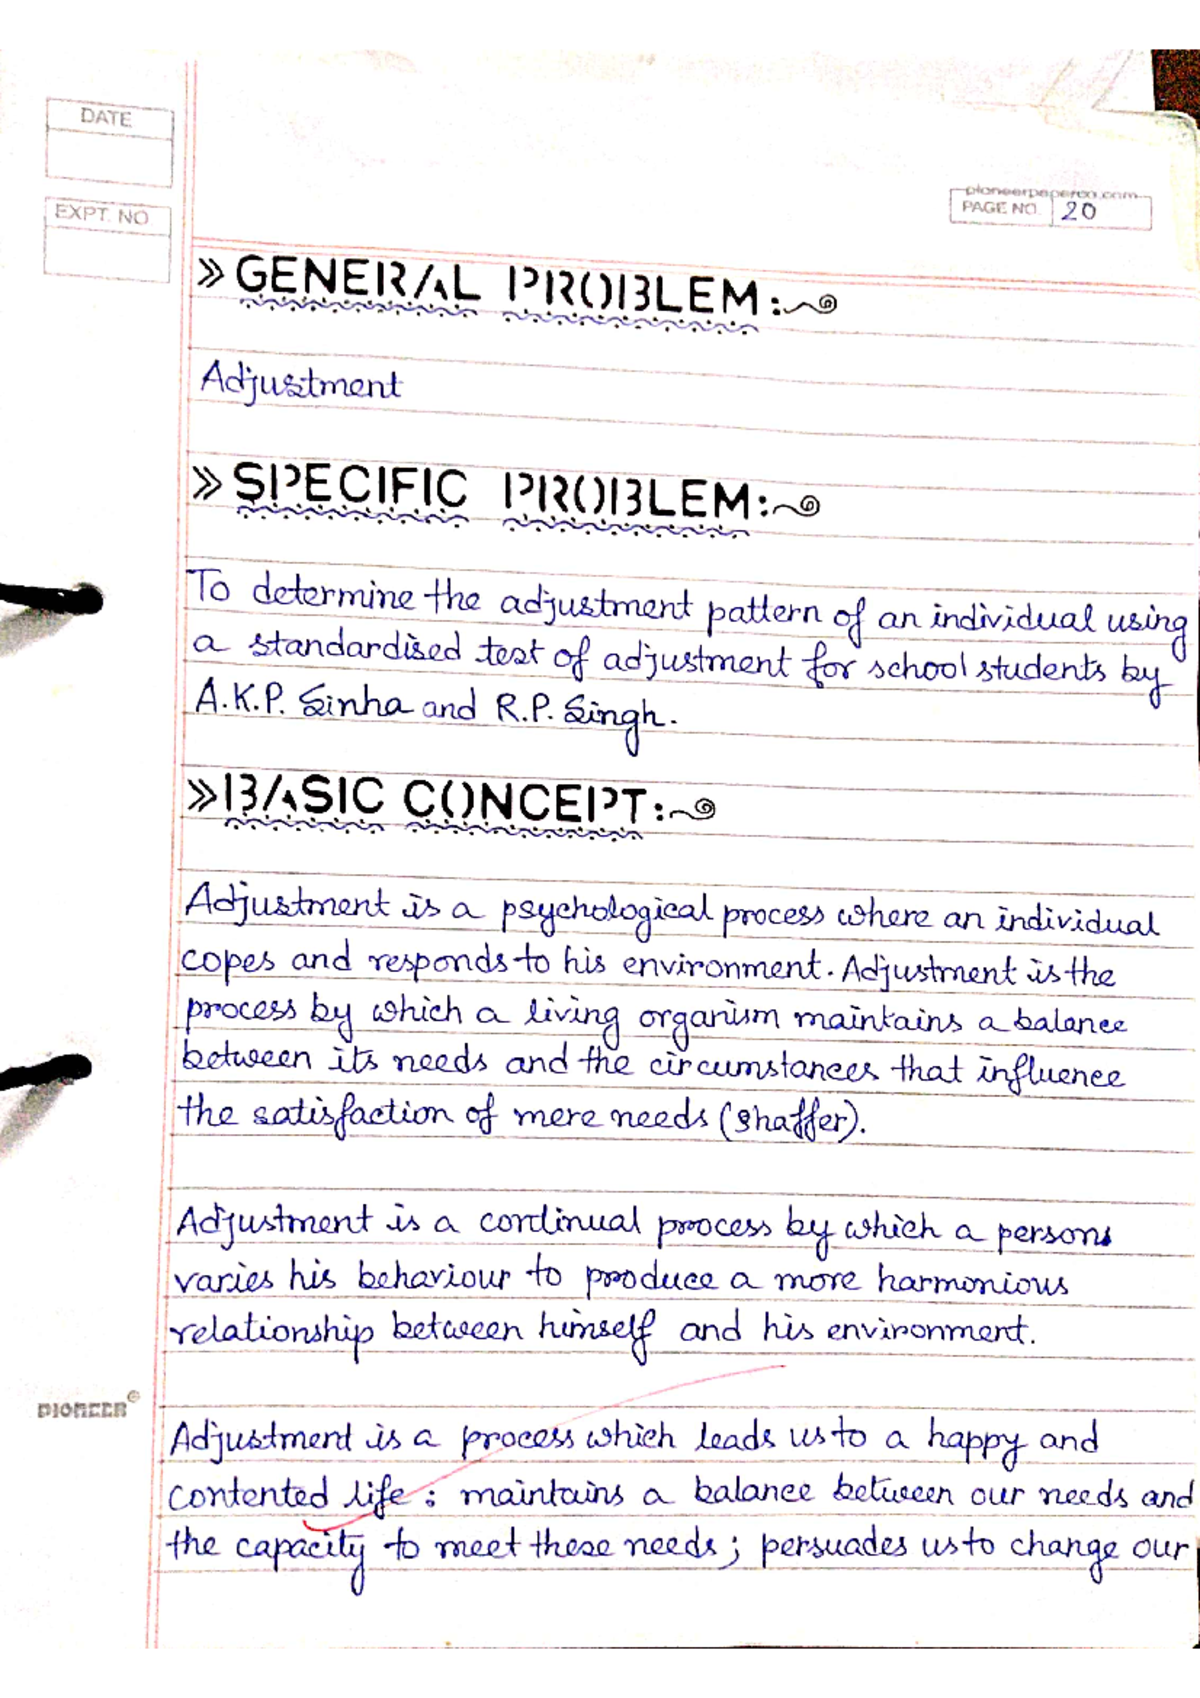 DATE
EXPT. NO.
pioneerpaperco.com
PAGE NO. 20
» GENERAL PROBLEM:
Adjustment
» SPECIFIC PROBLEM:
To determine the adjustment pattern of an individual using
a standardised test of adjustment for school students by
A.K.P. Sinha and R.P. Singh.
» BASIC CONCEPT:
Adjustment is a psychological process where an individual
copes and responds to his environment. Adjustment is the
process by which a living organism maintains a balance
between its needs and the circumstances that influence
the satisfaction of mere needs (Shaffer).
Adjustment is a continual process by which a persons
varies his behaviour to produce a more harmonious
relationship between himself and his environment.
PIONEER
Adjustment is a process which leads us to a happy and
contented life; maintains a balance between our needs and
the capacity to meet these needs; persuades us to change our